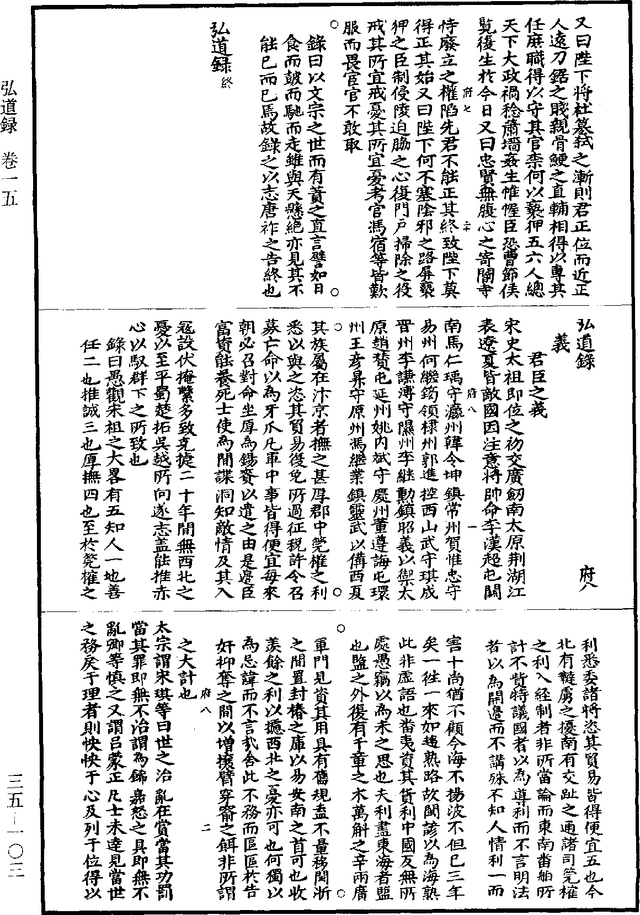 又曰陛下將杜篡弒之漸則君正位而近正
人遠刀鋸之賤親骨鯁之直輔相得以專其
任庶職得以守其官柰何以褻狎五六人總
天下大政禍稔蕭墻姦生帷幄臣恐曹節侯
覽復生於今日又曰忠賢無腹心之寄閽寺
恃廢立之權陷先君不能正其終致陛下莫
得正其始又曰陛下何不塞陰邪之路屏褻
狎之臣制侵陵迫脇之心復門戶掃除之役
戒其所宜戒憂其所宜憂考官馮宿等皆歎
服而畏宦官不敢取
錄曰以文宗之世而有蕡之直言譬如日
食而鼓而馳而走雖與天懸絕亦見其不
能已而已焉故錄之以志唐祚之告終也
弘道錄 終
弘道錄 卷一五
弘道錄 府八
義
君臣之義
宋史太祖即位之初交廣劒南太原荆湖江
表遼夏皆敵國因注意將帥命李漢超屯關
南馬仁瑀守瀛州韓令坤鎮常州賀惟忠守
易州何繼筠領棣州郭進控西山武守琪戍
晉州李謙溥守隰州李繼勳鎮昭義以禦太
原趙贊屯延州姚內斌守慶州董遵誨屯環
州王彥昇守原州馮繼業鎮靈武以備西夏
其族屬在汴京者撫之甚厚郡中筦榷之利
悉以與之恣其貿易復免所過征稅許令召
募亡命以為牙爪凡軍中事皆得便宜每來
朝必召對命坐厚為錫賚以遣之由是邊臣
富貲能養死士使為間諜洞知敵情及其入
寇設伏掩擊多致克捷二十年間無西北之
憂以至平蜀楚拓吳越所向遂志蓋能推赤
心以馭群下之所致也
錄曰愚觀宋祖之大畧有五知人一也善
任二也推誠三也厚撫四也至於筦榷之
利悉委諸將恣其貿易皆得便宜五也今
北有韃虜之擾南有交趾之通諸司筦榷
之利入經制者非所當論而東南畨舶所
計不貲特議國者以為導利而不言明法
者以為開邊而不講殊不知人情利一而
害十尚猶不顧今海不揚波不但已三年
矣一徃一來如趨熟路故聞諺以為海熟
此非虛語也畨夷資其貨利中國反無所
處愚竊以為未之思也夫利盡東海者鹽
也鹽之外復有千童之木萬斛之辛兩廣
軍門見資其用具有舊規盍不量移閩浙
之間置封樁之庫以易安南之首可也收
羨餘之利以攘西北之憂亦可也何獨以
為忌諱而不言哉舍此不務而區區於告
奸抑奪之間以增攘臂穿窬之餌非所謂
之大計也
太宗謂宋琪等曰世之治亂在賞當其功罰
當其罪即無不治謂為飾喜怒之具即無不
亂卿等慎之又謂呂蒙正凡士未達見當世
之務戾于理者則怏怏于心及列于位得以
三五—一〇三